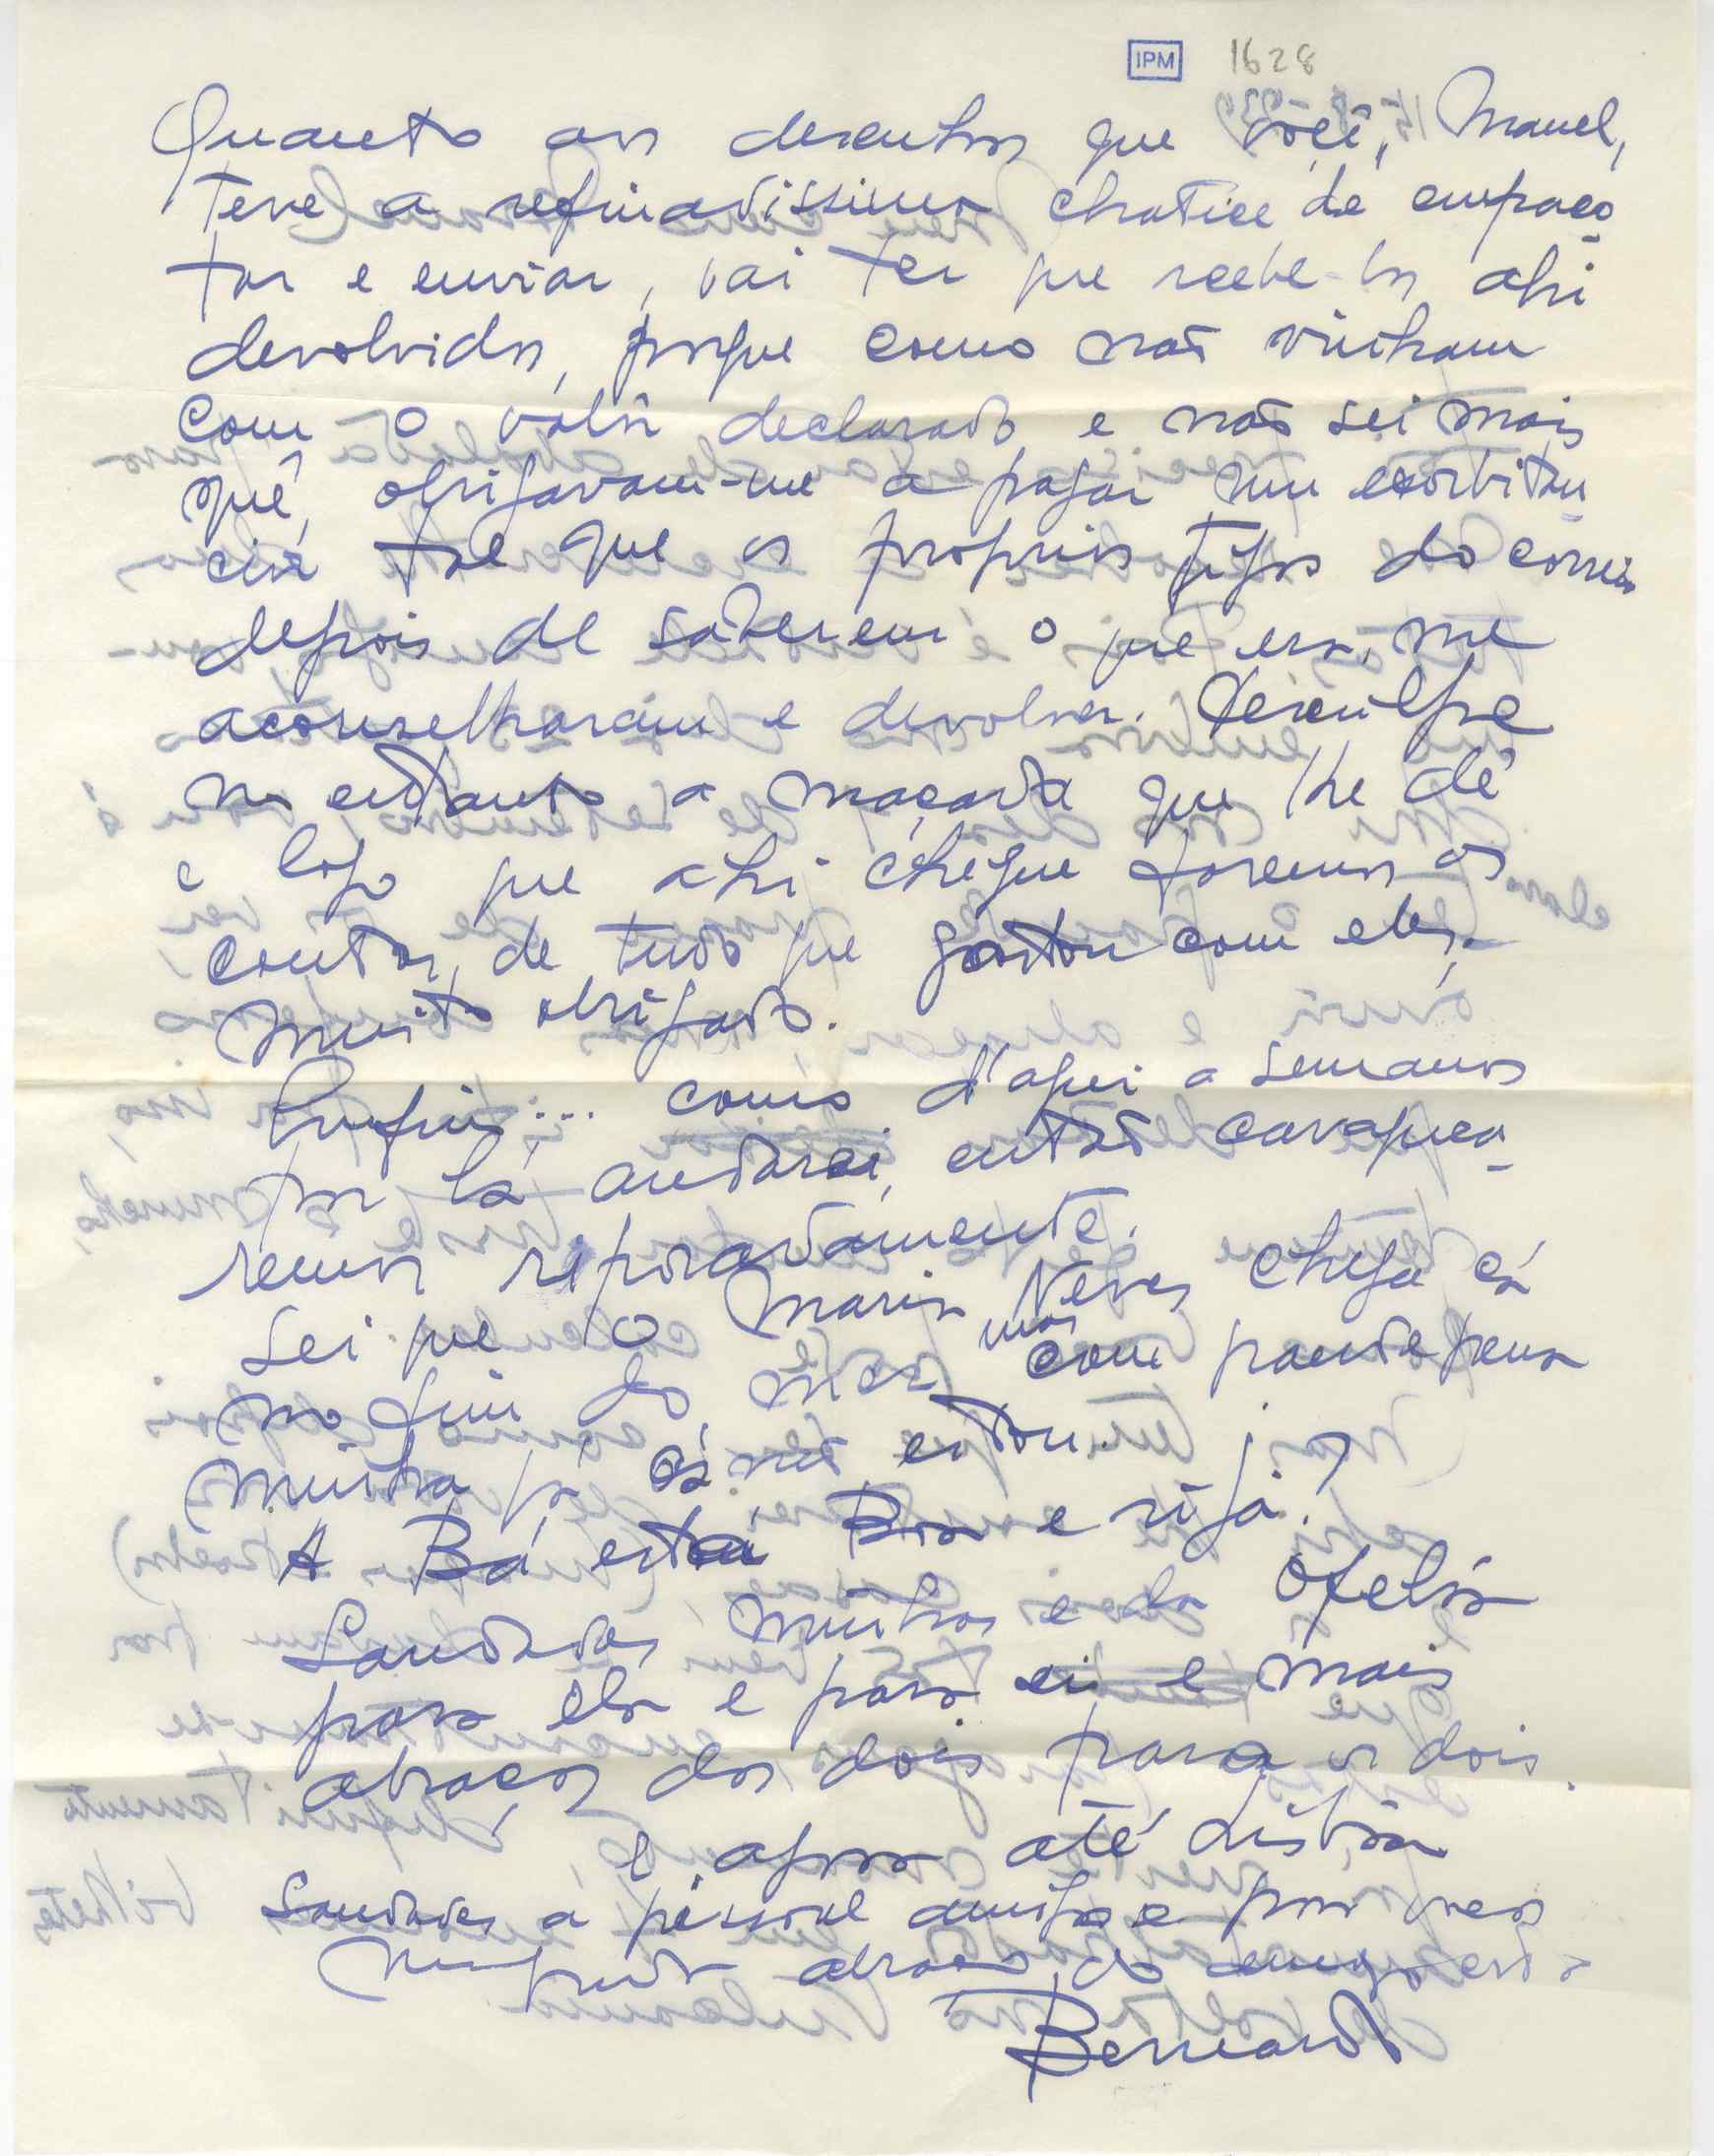 IPM 1628
Quanto aos desenhos que você, Manuel,
teve a refinadissima chatice de empaco-
tar e enviar, vai ter que recebe-los ahi
devolvidos, porque como não vinham
com o valôr declarado e não sei mais
quê, obrigavam-me a pagar uma exorbitan-
cia tal que os proprios tipos do correio
depois de saberem o que era, me
aconselharam e devolver. Desculpe
no entanto a maçada que lhe dê
e logo que ahi chegue faremos as
contas, de tudo que gastou com eles.
Muito obrigado.
Enfim... como d'aqui a semanas
por lá andarei, então cavaquea-
remos reposadamente.
Sei que o Mario Neves chega cá
no fim do mez, mas com grande pena
minha já cá não estou.
A Bá está Boa e rija?
Saudades minhas e da Ofelia
para ela e para si e mais
abraços dos dois para os dois.
E agora até Lisbôa
Saudades á pessoal amigo e
abraço do
Bernardo